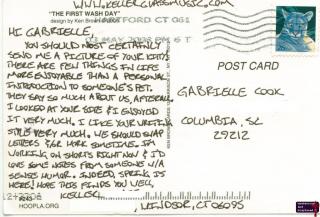 WWW.KELLERGLASSMUSIC.COM
"THE FIRST WASH DAY"
design by Ken Brown
HARTFORD CT 061
MAY 2008 PM 6 T
HI GABRIELLE,
YOU SHOULD MOST CERTAINLY
SEND ME A PICTURE OF YOUR KITTI
THERE ARE FEW THINGS IN LIFE
MORE ENJOYABLE THAN A PERSONAL
INTRODUCTION TO SOMEONE'S PET.
THEY SAY SO MUCH ABOUT US, AFTERALL.
I LOOKED AT YOUR SITE & I ENJOYED
IT VERY MUCH. I LIKE YOUR WRITING
STYLE VERY MUCH. WE SHOULD SWAP
LETTERS &/OR WORK SOMETIME. I'M
WORKING ON SHORTS RIGHT NOW & I'D
LOVE SOME NOTES FROM SOMEONE W/A
SENSE OF HUMOR. INDEED, SPRING IS
HERE! HOPE THIS FINDS YOU WELL,
KELLER
HOOPLA.ORG
WINDSOR, CT 06095
POST CARD
GABRIELLE COOK
COLUMBIA, SC
29212